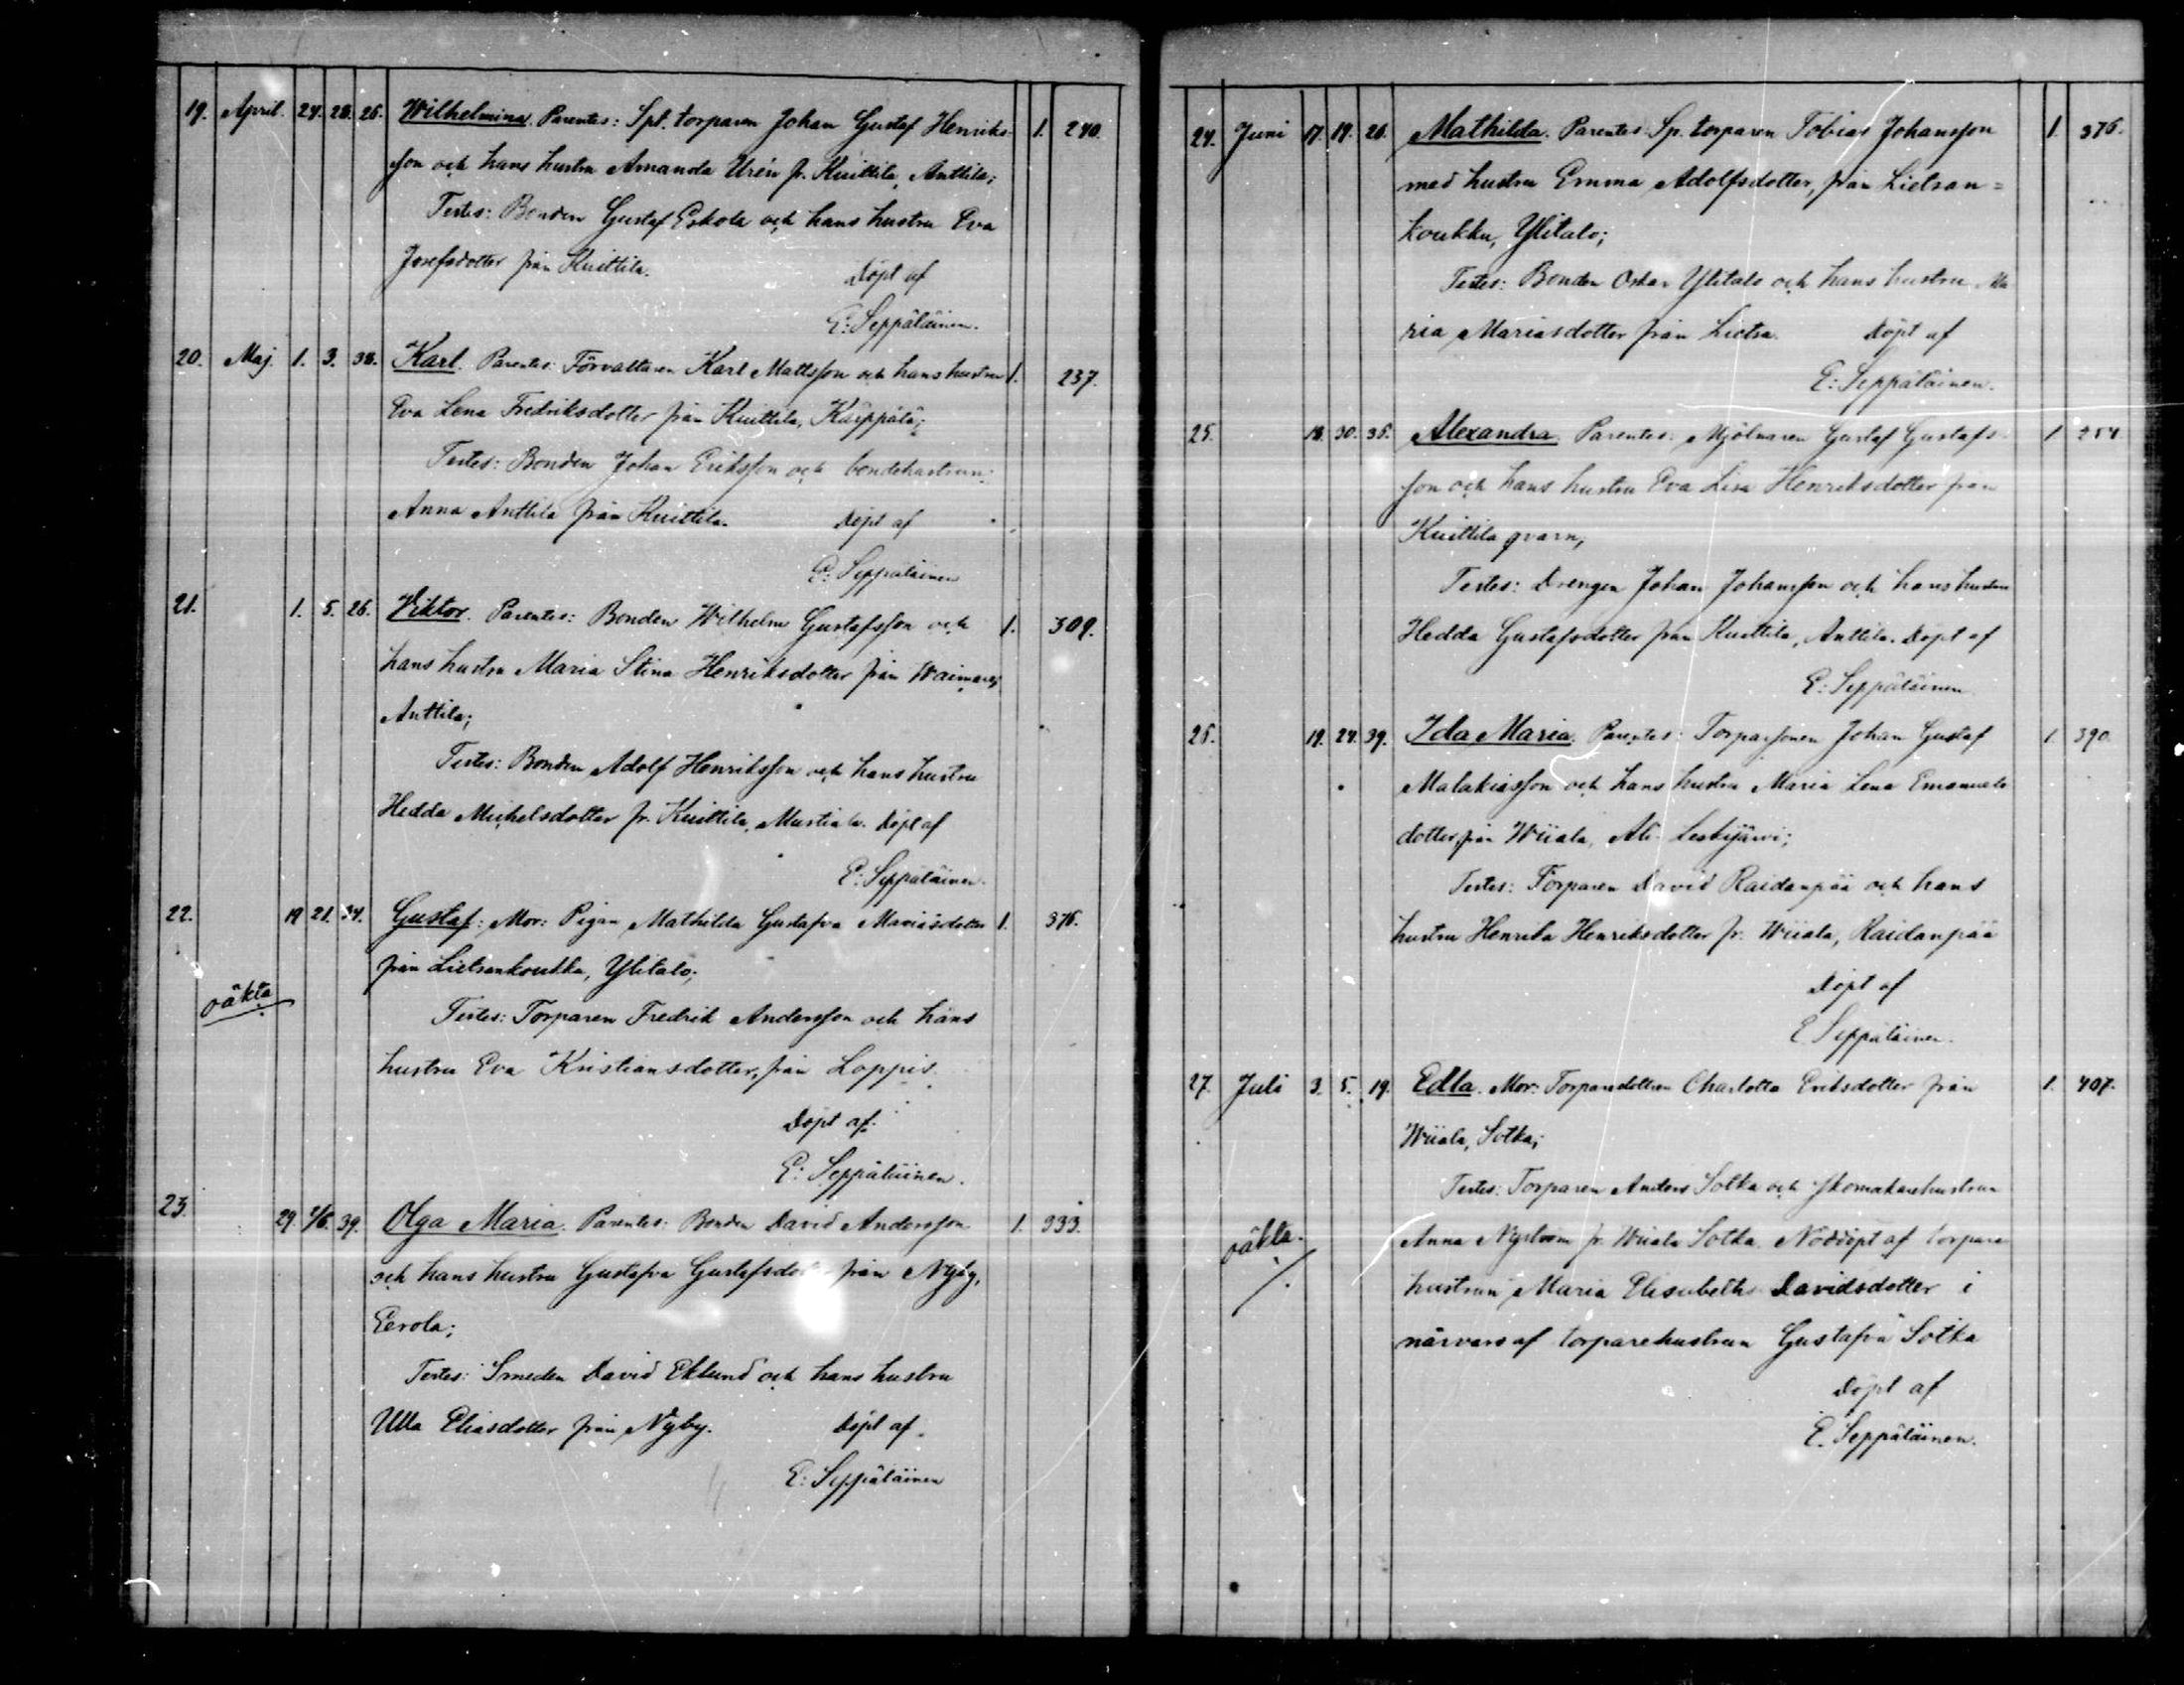 19. April. 24. 28. 26. Wilhelmina. Parentes: Spt. torparen Johan Gustaf Henriks- 1. 240.
son och hans hustru Amanda Urén fr. Kuittila, Anttila;
Testes: Bonden Gustaf Eskola och hans hustru Eva
Josefsdotter från Kuittila. Döpt af
E: Seppäläinen.
20. Maj. 1. 3. 38. Karl. Parentes: Förvaltaren Karl Mattsson och hans hustru 1. 237.
Eva Lena Fredriksdotter från Kuittila, Karppala;
Testes: Bonden Johan Eriksson och bondehustrun
Anna Anttila från Kuittila. Döpt af
E: Seppäläinen
21. 1. 5. 26. Viktor. Parentes: Bonden Wilhelm Gustafsson och 1. 309.
hans hustru Maria Stina Henriksdotter från
Anttila;
Testes: Bonden Adolf Henriksson och hans hustru
Hedda Michelsdotter fr. Kuittila, Mustiala. Döpt af
E: Seppäläinen.
22. 19 21. 34. Gustaf: Mor: Pigan Mathilda Gustafva Mariasdotter 1. 376.
från Lietsankoukku, Ylitalo;
oäkta
Testes: Torparen Fredrik Andersson och hans
hustru Eva Kristiansdotter, från Loppis.
Döpt af
E: Seppäläinen.
23. 29. 2/6. 39. Olga Maria. Parentes: Bonden David Andersson 1. 333.
och hans hustru Gustafva Gustafsdot från Nyby,
Eerola;
Testes: Smeden David Eklund och hans hustru
Ulla Eliasdotter från Nyby. Döpt af
E: Seppäläinen
24. Juni 17. 19. 26. Mathilda. Parentes: Sp. torparen Tobias Johansson 1. 376.
med hustru Emma Adolfsdotter, från Lietsan=
koukku, Ylitalo;
Testes: Bonden Oskar Ylitalo och hans hustru Ma
ria Mariasdotter från Lietsa. Döpt af
E: Seppäläinen.
25. 18. 30. 35. Alexandra. Parentes: Mjölnaren Gustaf Gustafs- 1 254
son och hans hustru Eva Lisa Henriksdotter från
Kuittila qvarn,
Testes: Drengen Johan Johansson och hans hustru
Hedda Gustafsdotter från Kuittila, Anttila. Döpt af
E: Seppäläinen
26. 19. 24. 39. Ida Maria. Parentes: Torparsonen Johan Gustaf 1. 390.
Malakiasson och hans hustru Maria Lena Emanuels
dotter från Wiiala, Ali- Leskijärvi;
Testes: Torparen David Raidanpää och hans
hustru Henrika Henriksdotter fr. Wiiala, Raidanpää
Döpt af
E Seppäläinen.
27. Juli 3. 5. 19. Edla. Mor: Torparedottren Charlotta Eriksdotter från 1. 407.
Wiiala, Sotka;
Testes: Torparen Anders Sotka och skomakarehustrun
oäkta. Anna Nyström fr. Wiiala Sotka. Nöddöpt af torpare
hustrun Maria Elisabeth Davidsdotter i
närvaro af torparehustrun Gustafva Sotka
Döpt af
E. Seppäläinen.